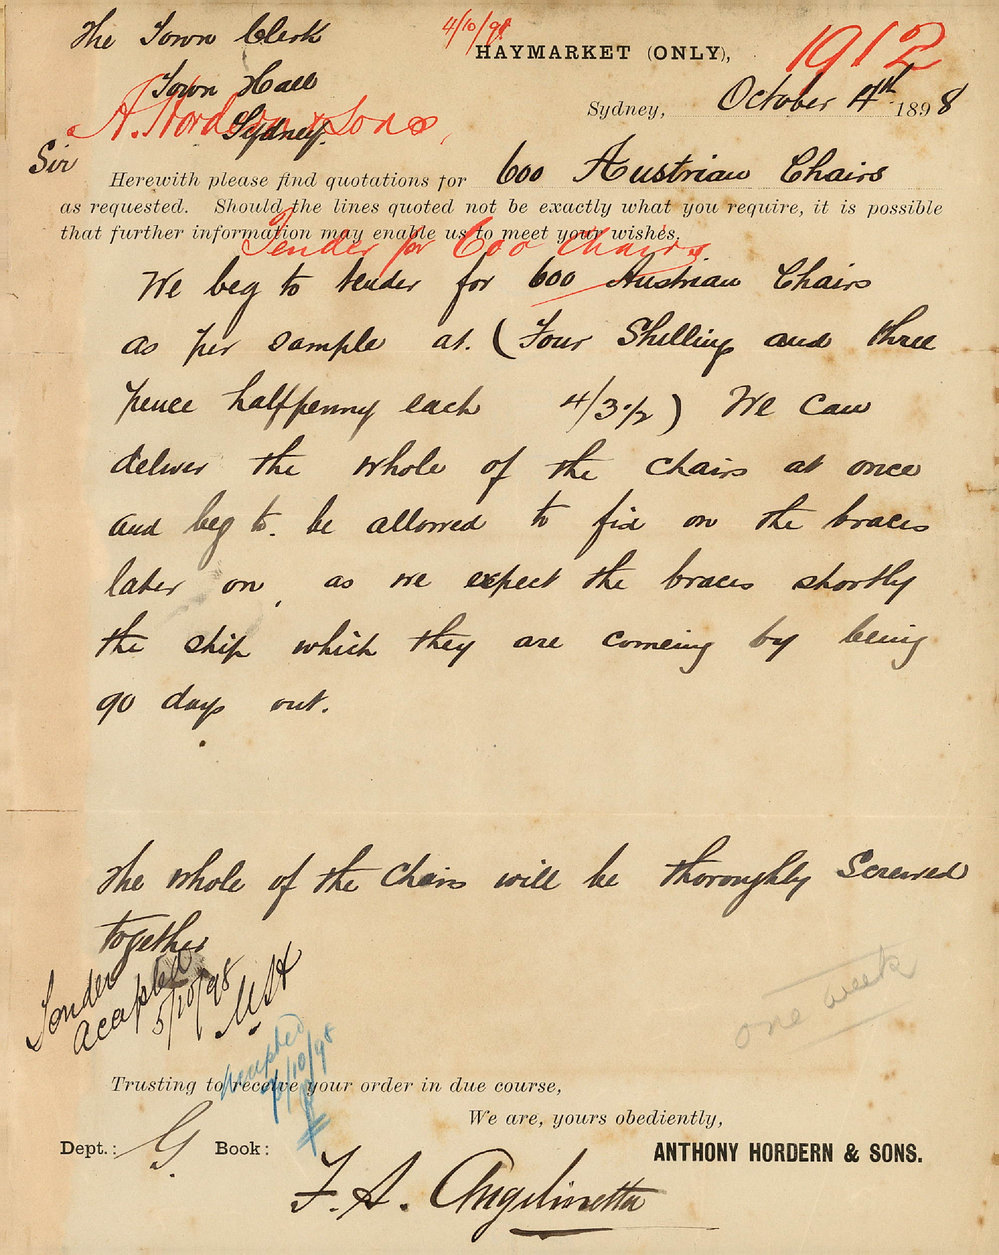 4/10/98
The Town Clerk
HAYMARKET (ONLY),
1912
Town Hall
Sydney, October 4th 1898
A. Hordern & Sons,
Sydney.
Sir
Herewith please find quotations for 600 Austrian Chairs
as requested. Should the lines quoted not be exactly what you require, it is possible
that further information may enable us to meet your wishes.
Tender for 600 Chairs
We beg to tender for 600 Austrian Chairs
as per sample at. (Four Shilling and three
pence halfpenny each 4/3 1/2) We can
deliver the whole of the chairs at once
and beg to. be allowed to fix on the braces
later on, as we expect the braces shortly
the ship which they are comeing by being
90 days out.
The whole of the Chairs will be thoroughly Screwed
together
Tender
Acepted
5/10/98
one week
Accepted
/10/98
Trusting to receive your order in due course,
We are, yours obediently,
Dept.: G. Book:
ANTHONY HORDERN & SONS.
F. A. Angelinetta